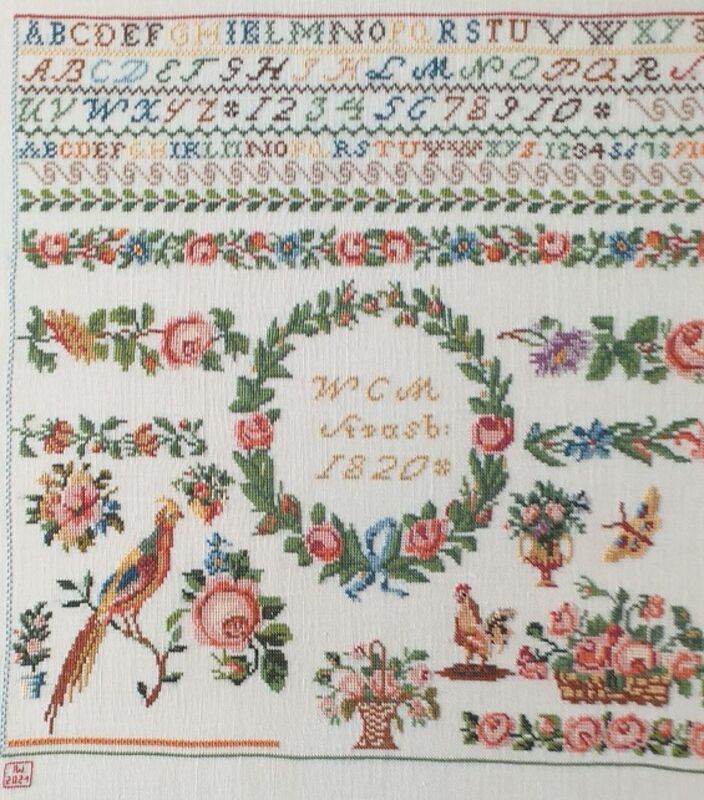 ABCDEFGHIKLMNOPQRSTUVWXYZ
ABCDEFGHIKLMNOPQRS
UVWXYZ*12345678910*
ABCDEFGHIKLMNOPQRSTUVWXYZ.12345678910
W C M
1820*
2021